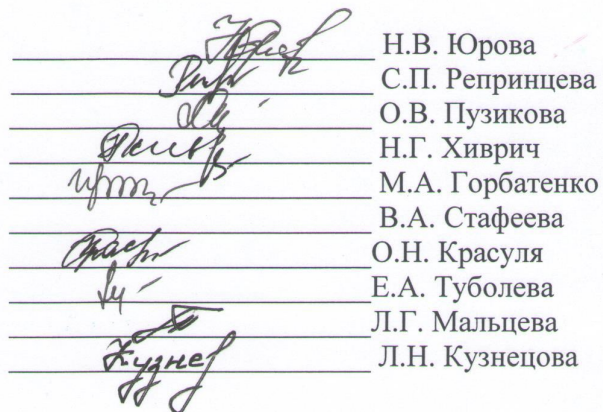 Н.В. Юрова
С.П. Репринцева
О.В. Пузикова
Н.Г. Хиврич
М.А. Горбатенко
В.А. Стафеева
О.Н. Красуля
Е.А. Туболева
Л.Г. Мальцева
Л.Н. Кузнецова